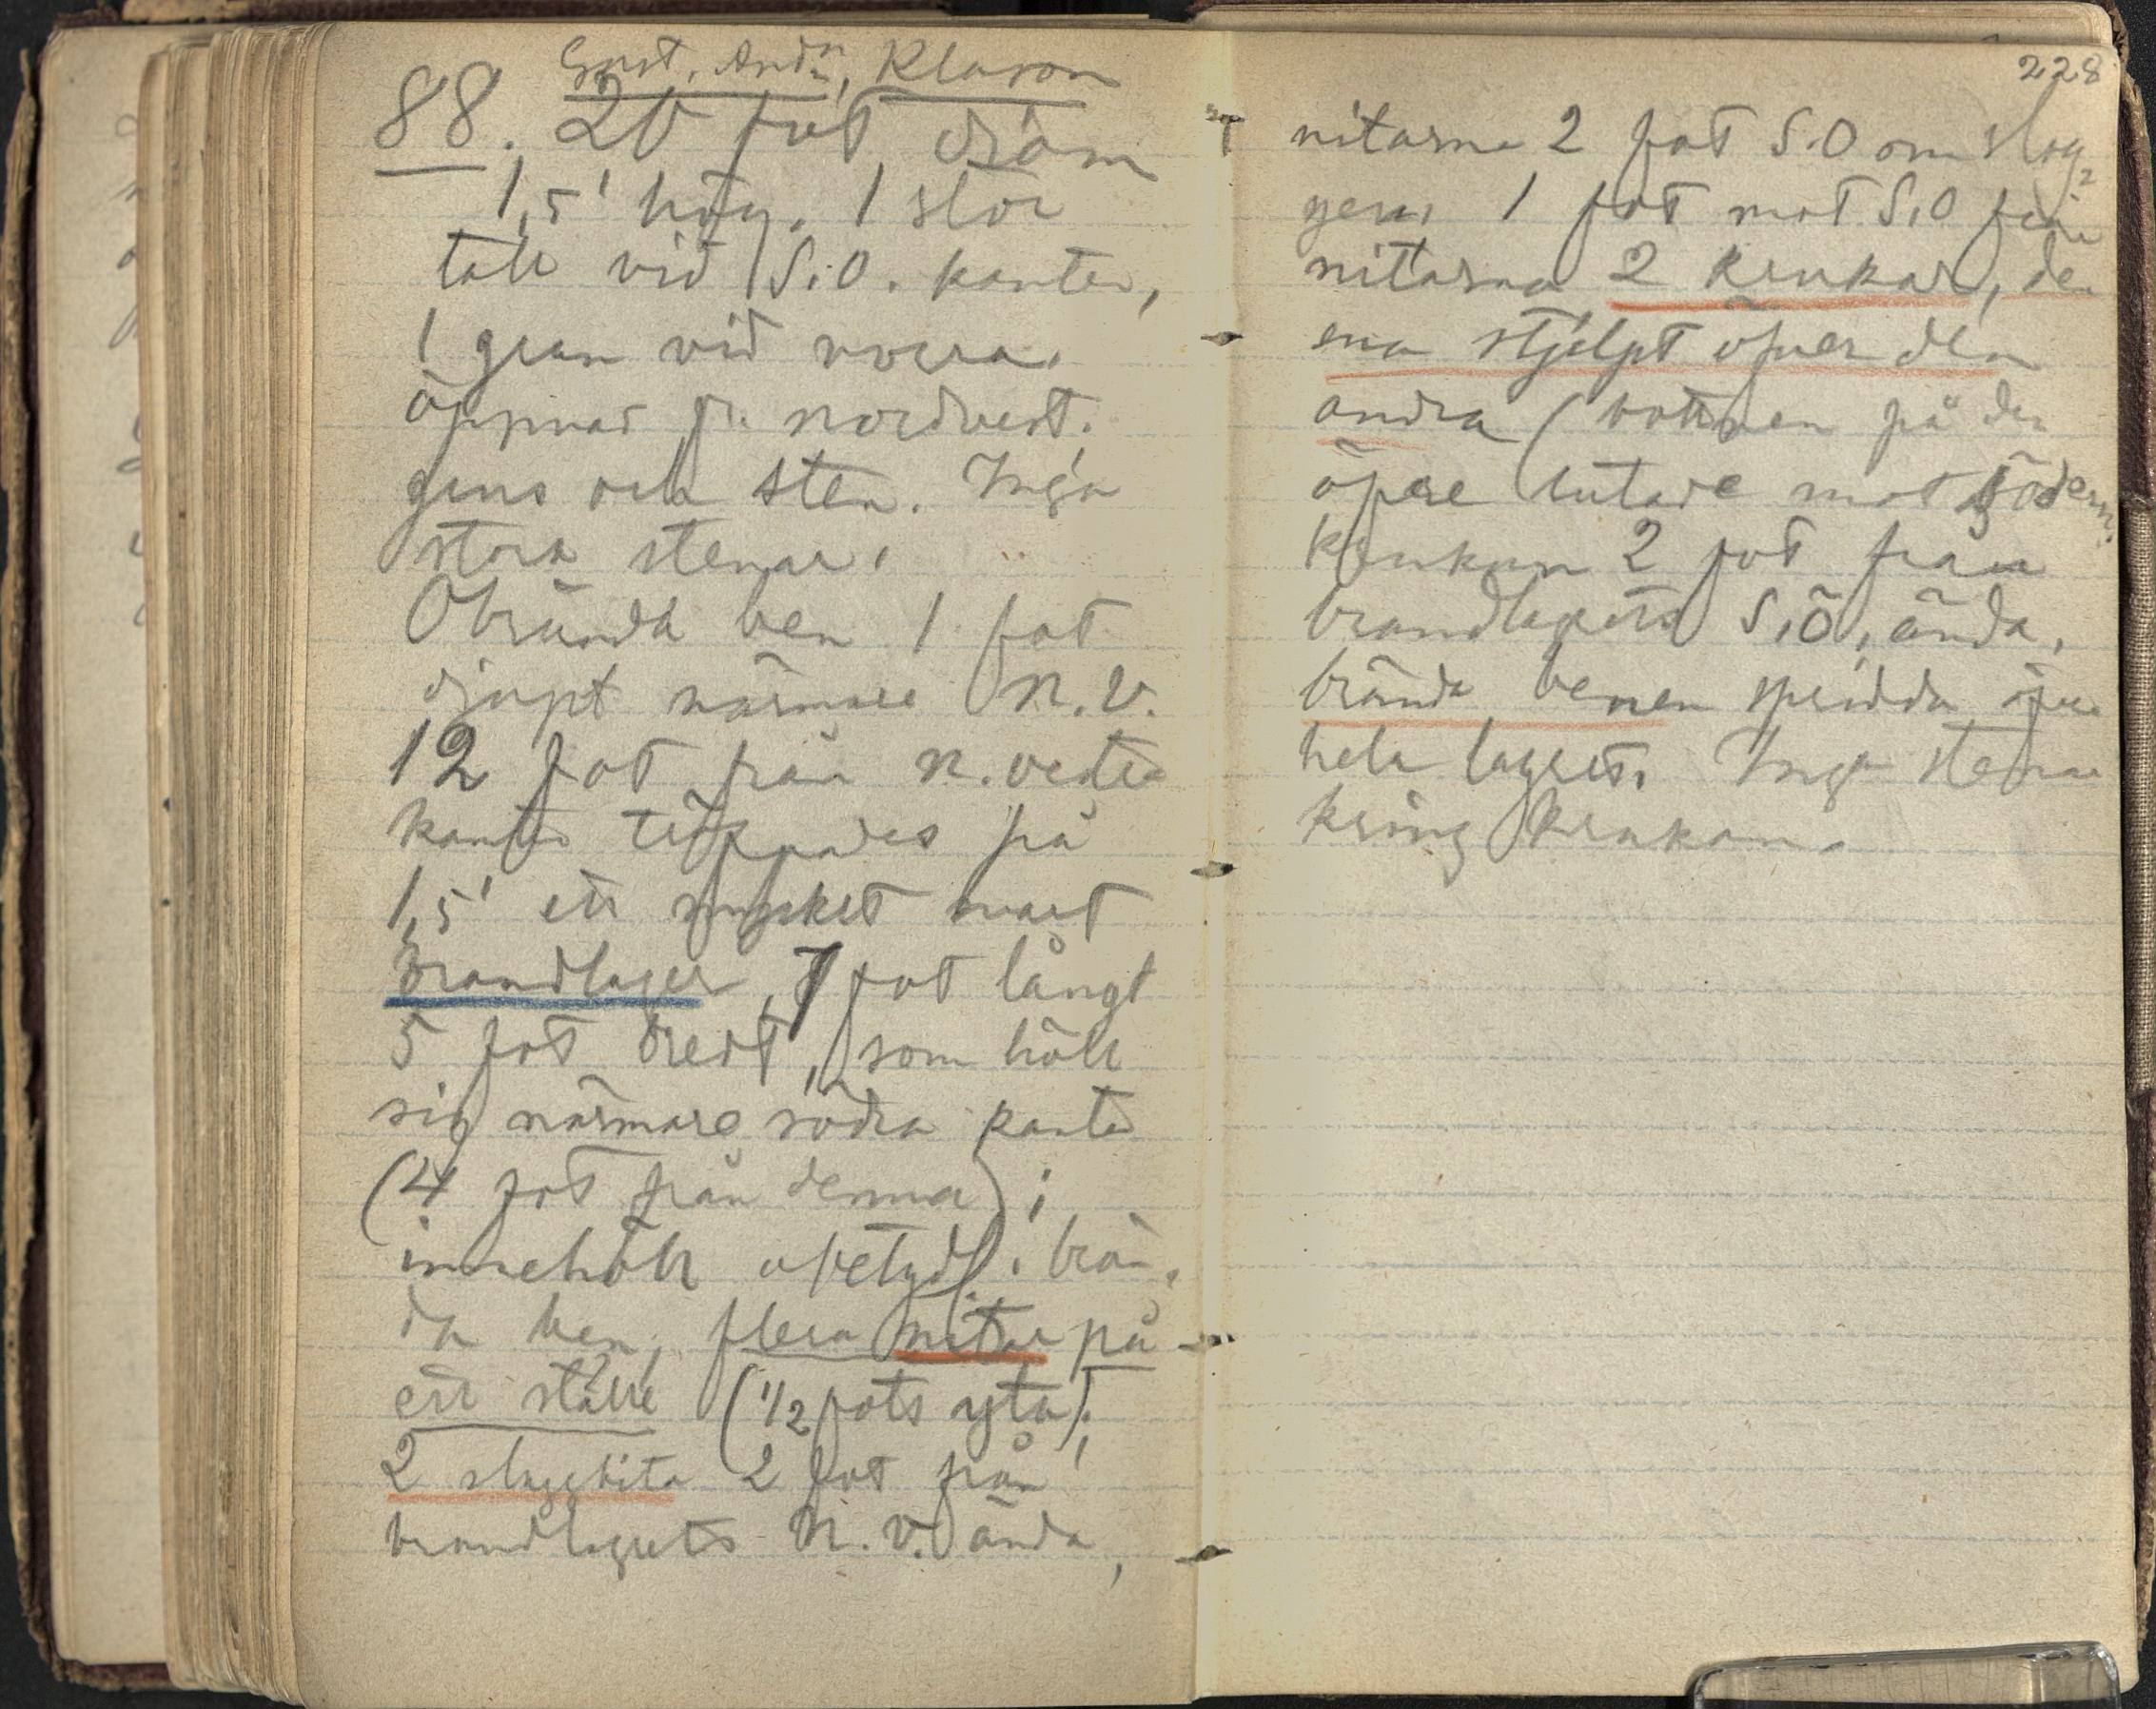 Gust. Andn, Klason
88. 20 fot diam
1,5' hög. 1 stor
tall vid S.O. kanten,
1 gran vid norra.
öppnad fr. nordvest.
grus och sten. Inga
stora stenar.
Obrända ben 1 fot
djupt närmare N.V.
12 fot från n. vestra
kanten täppades på
1,5' ett mycket svart
brandlager, 7 fot långt
5 fot bredt, som höll
sig närmare södra kanten
(4 fot från denna);
innehöll obetydl. brän,
da ben, flera nitar på
ett ställe (1/2 fots yta);
2 slaggbitar 2 fot från
brandlagrets N.V. ända,
228
nitarna 2 fot S.O om slag,
gen; 1 fot mot S.O från
nitarna 2 krukor, den
ena stjelpt öfver den
andra (bottnen på den
öfre lutade mot södern.
krukan 2 fot från
brandlagrets S.Ö. ända.
brända benen spridda öfver
hela lagret. Inga stenar
kring krukan.